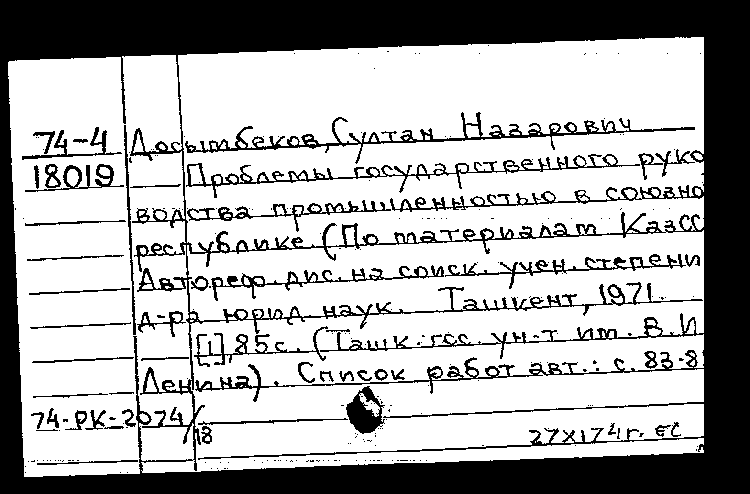 74-4 Досымбеков, Султан Назарович
18019 Проблемы государственного руко
водства промышленностью в союзно
республике. (По материалам КазСС
Автореф. дис. на соиск. учен. степени
д-ра юрид. наук. Ташкент, 1971.
[1], 85 с. (Ташк. гос. ун-т им. В. И
Ленина). Список работ авт.: с. 83-8
74-РК-2074/18
27х174г. ЕС